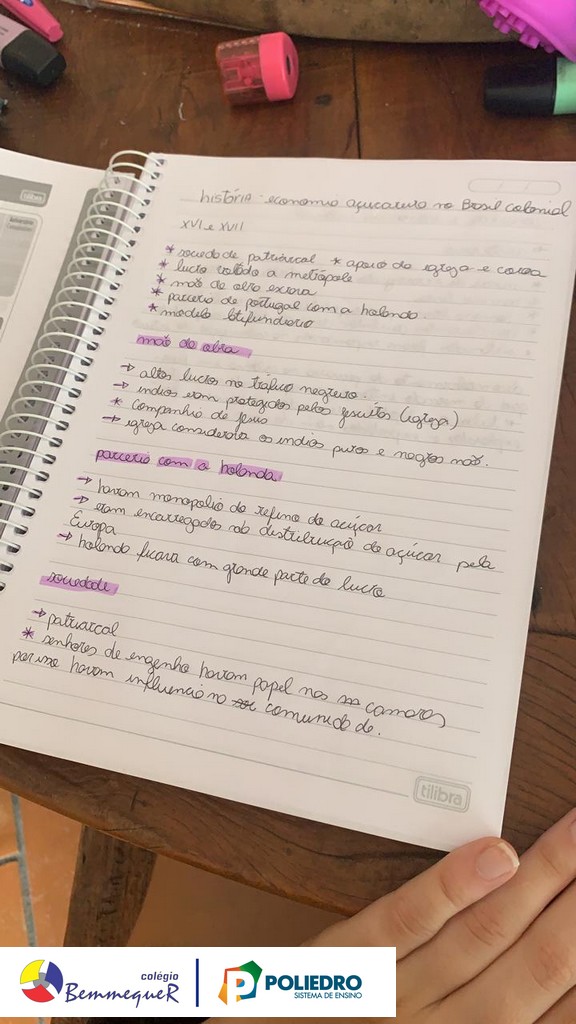 história - economia açucareira no Brasil colonial
XVI e XVII
* sociedade patriarcal * apoio da igreja e coroa
* lucro voltado a metrópole
* mão de obra escrava
* parceria de portugal com a holanda.
* modelo latifundiario
mão de obra
→ altos lucros no tráfico negreiro.
→ indios eram protegidos pelos jesuítas (igreja)
* Companhia de Jesus
→ igreja considerava os indios puros e negros não.
parceria com a holanda
→ haviam monopolio do refino do açúcar
→ eram encarregados da distribuição do açúcar pela
Europa
→ holanda ficava com grande parte do lucro
sociedade
→ patriarcal
* senhores de engenho haviam papel nas camaras
por isso haviam influencia na comunidade.
tilibra
tilibra
colégio
BemmequeR
POLIEDRO
SISTEMA DE ENSINO